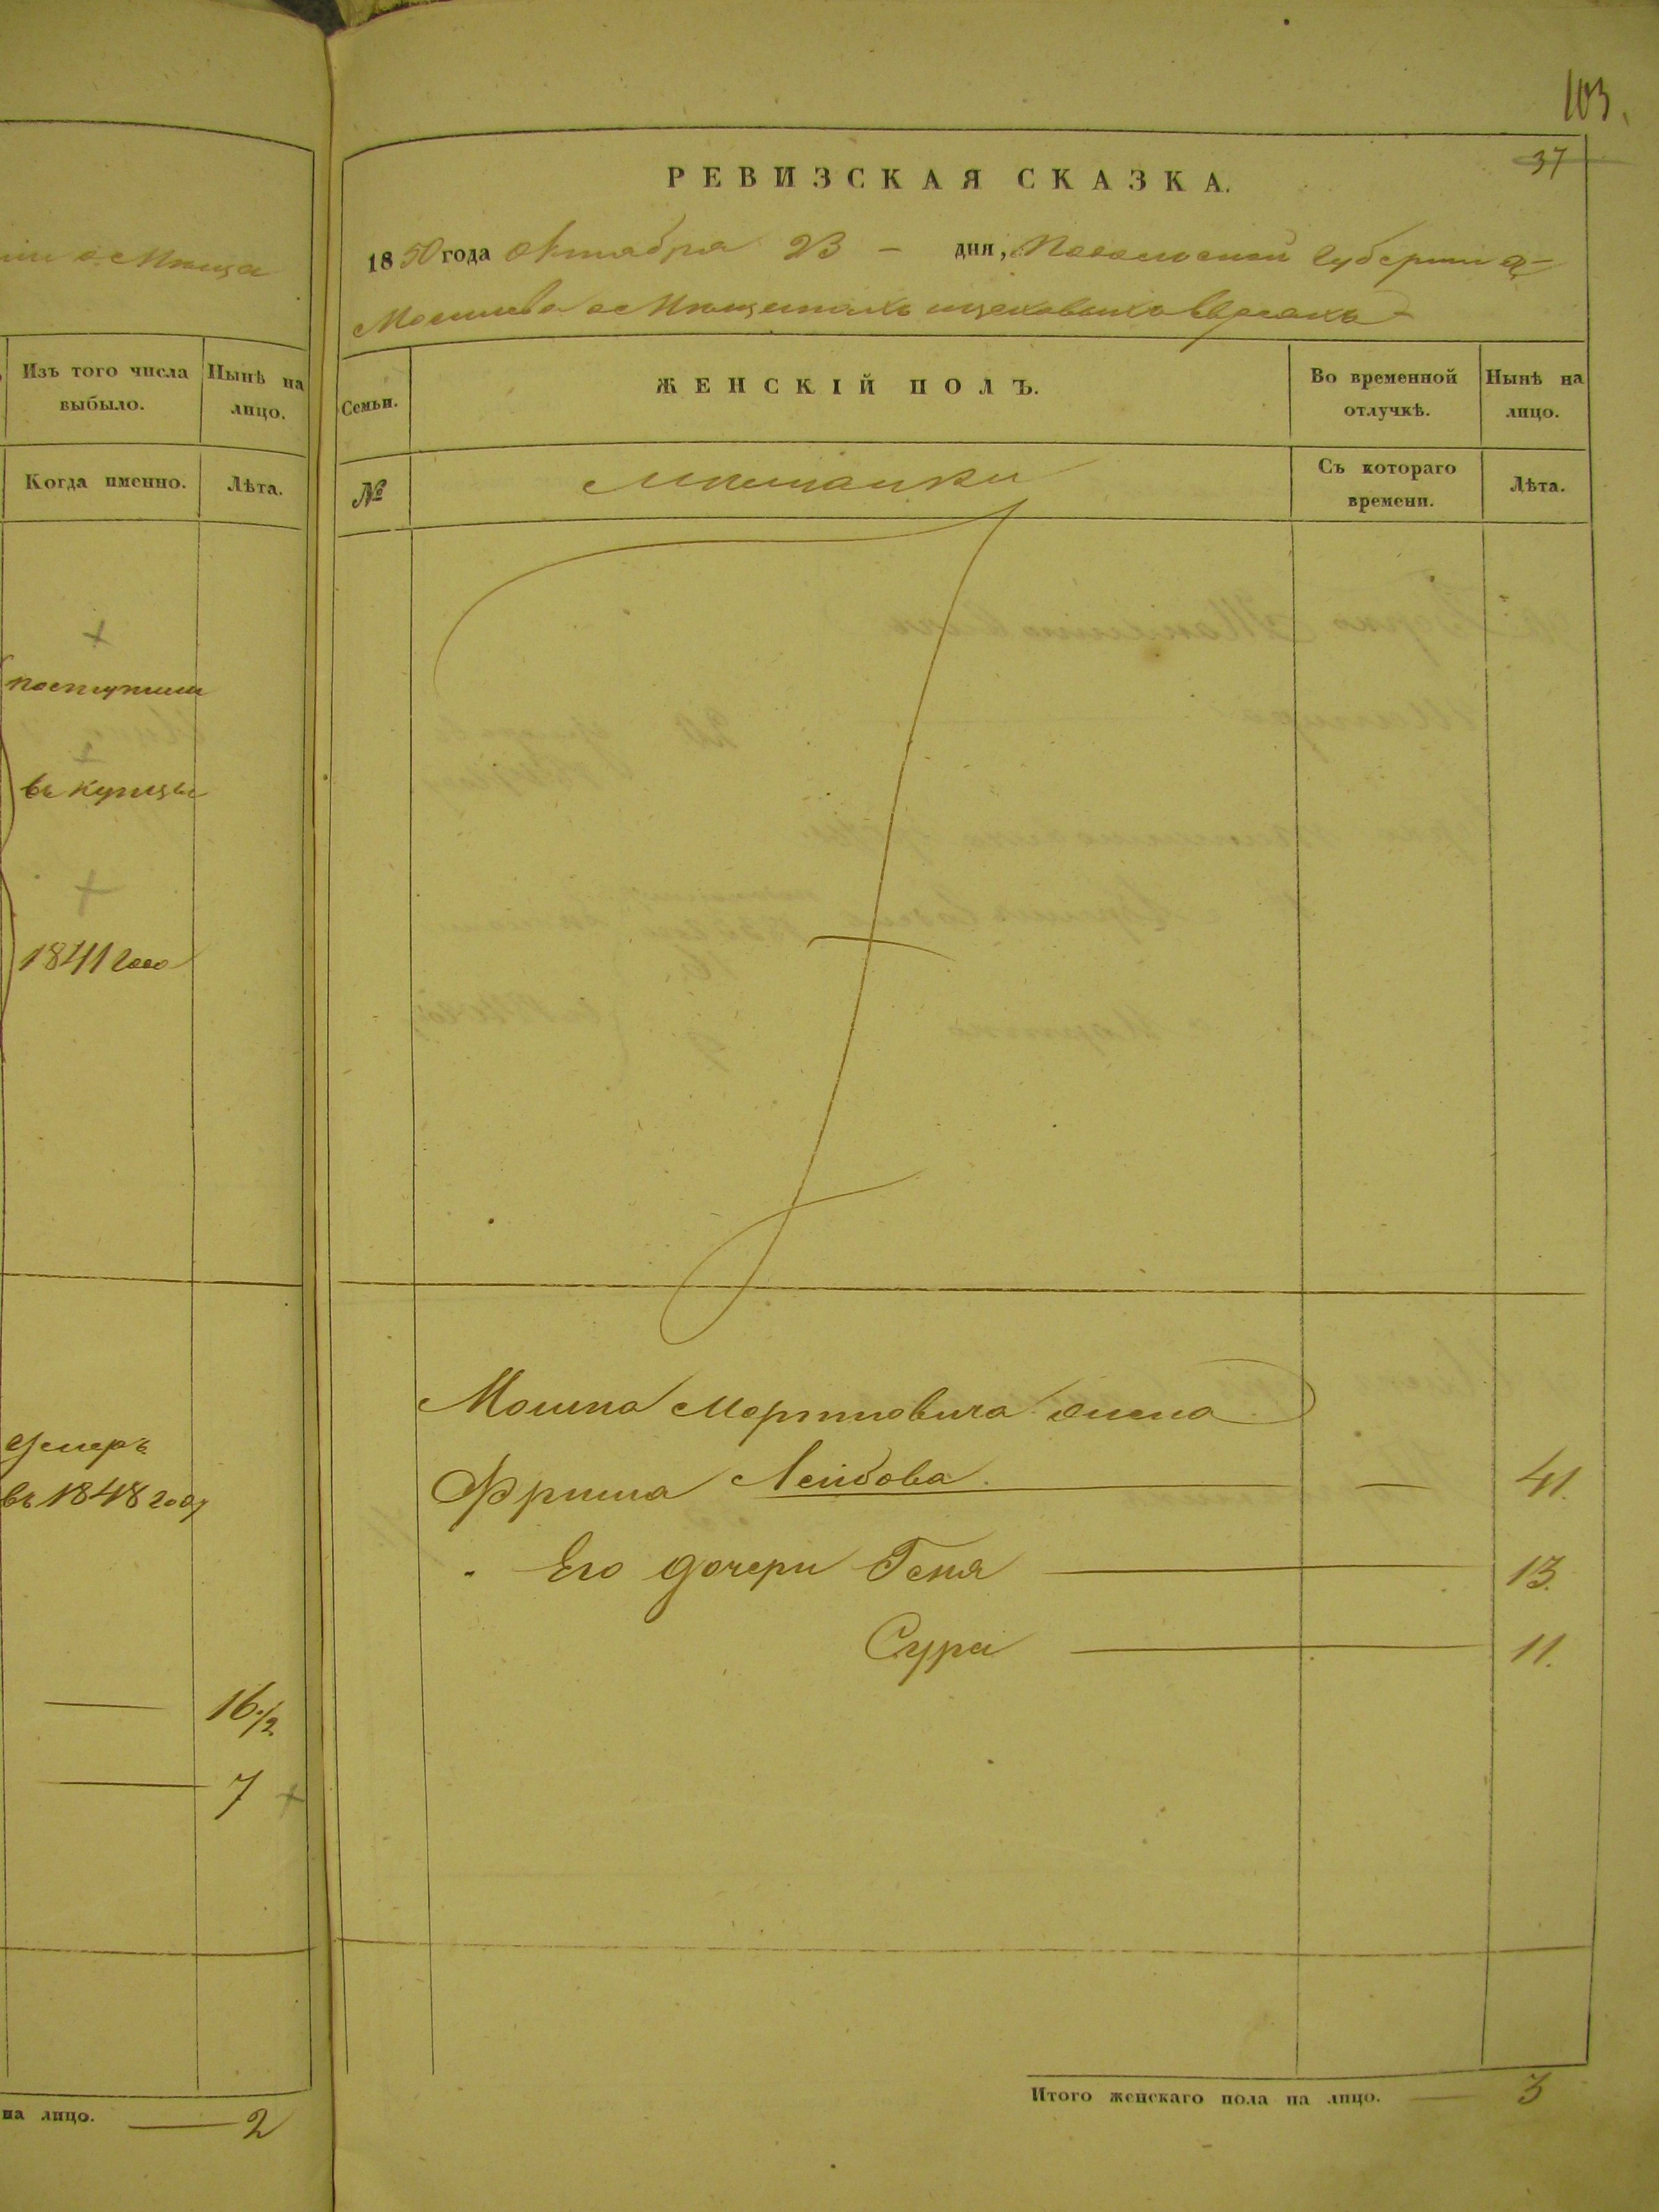 103.
37
РЕВИЗСКАЯ СКАЗКА.
1850 года Октября 23 – дня, Подольской Губернии
Могилева о Мѣщанахъ Евреяхъ
Изъ того числа выбыло.
Нынѣ на лицо.
Когда именно.
Лѣта.
поступили
въ купцы
1841 года
умеръ
въ 1848 году
16 1/2
7
на лицо. 2
Семьи.
ЖЕНСКІЙ ПОЛЪ.
Во временной отлучкѣ.
Нынѣ на лицо.
№
Мѣщанки
Съ котораго времени.
Лѣта.
Мошка Мортковича жена
Фрима Лейбова. — 41.
Его дочери Геня 13.
Сура 11.
Итого женскаго пола на лицо. 3